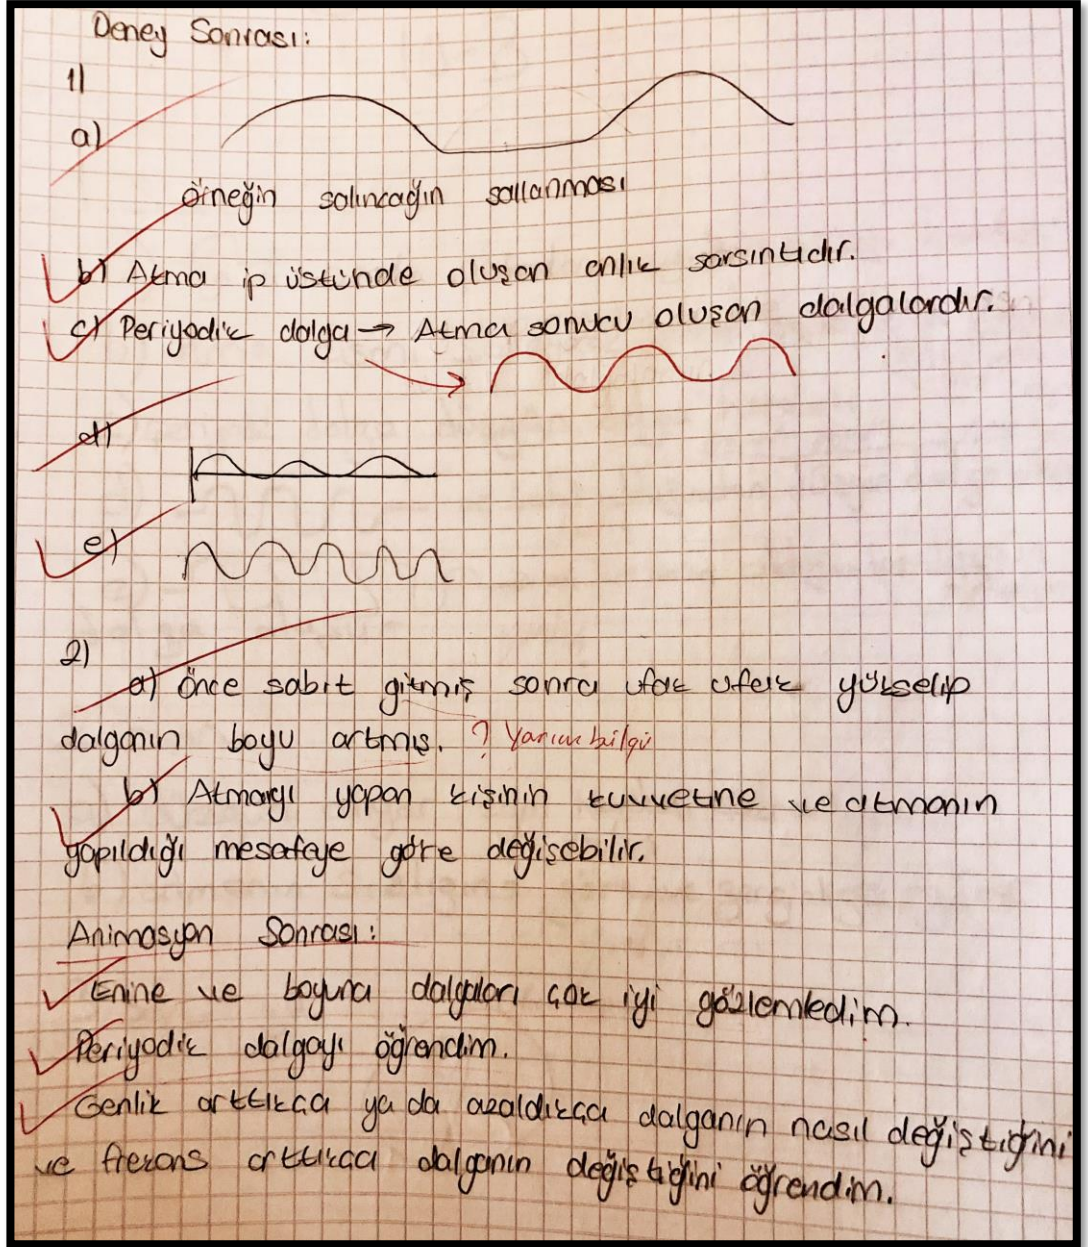 Deney Sonrası:
1)
a)
örneğin salıncağın sallanması
b) Atma ip üstünde oluşan anlık sarsıntıdır.
c) Periyodik dalga → Atma sonucu oluşan dalgalardır.
d)
e)
2)
a) Önce sabit gitmiş sonra ufak ufak yükselip
dalganın boyu artmış. ? Yarım bilgi
b) Atmayı yapan kişinin kuvvetine ve atmanın
yapıldığı mesafeye göre değişebilir.
Animasyon Sonrası:
Enine ve boyuna dalgaları çok iyi gözlemledim.
Periyodik dalgayı öğrendim.
Genlik arttıkça ya da azaldıkça dalganın nasıl değiştiğini
ve frekans arttıkça dalganın değiştiğini öğrendim.